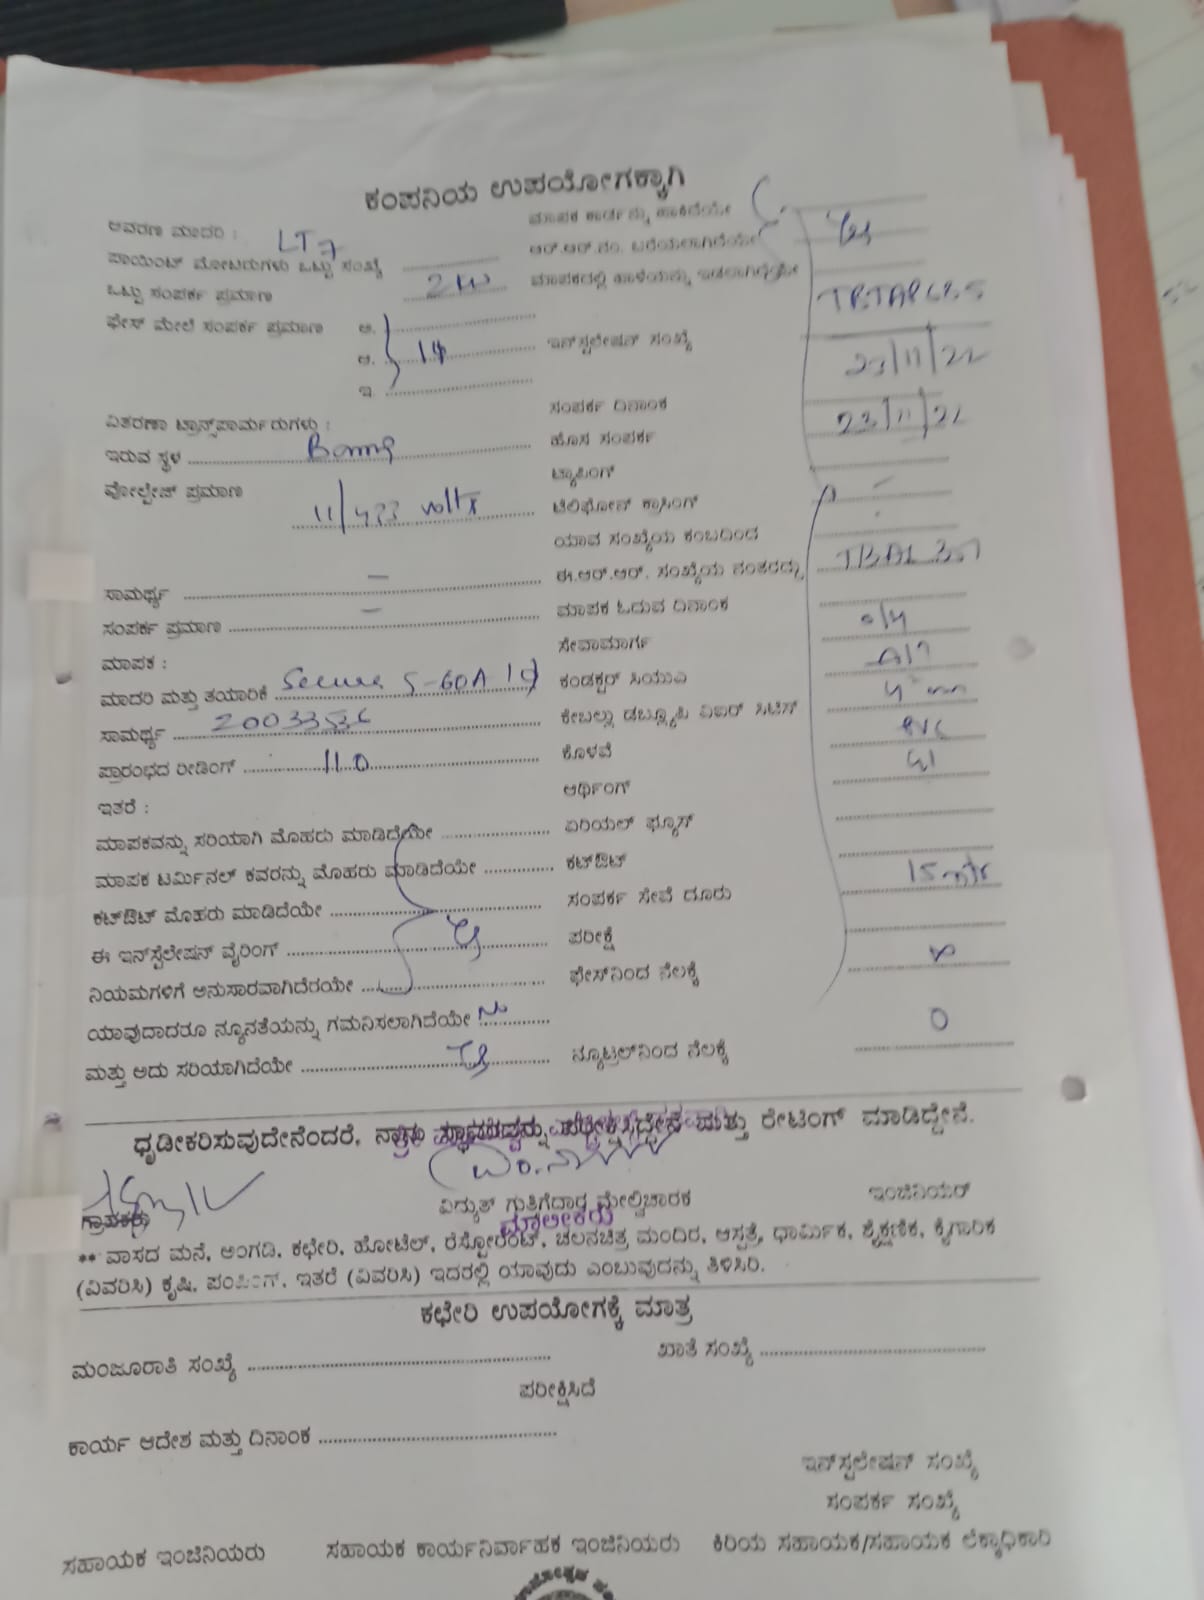 ಕಂಪನಿಯ ಉಪಯೋಗಕ್ಕಾಗಿ
ಆವರಣ ಮಾದರಿ : LT 7 ಮಾಪಕ ಕಾರ್ಡನ್ನು ಹಾಕಿದೆಯೇ
ಪಾಯಿಂಟ್ ಮೋಟರುಗಳು ಒಟ್ಟು ಸಂಖ್ಯೆ ಆರ್.ಆರ್.ನಂ. ಬರೆಯಲಾಗಿದೆಯೇ Yes
ಒಟ್ಟು ಸಂಪರ್ಕ ಪ್ರಮಾಣ 2 KW ಮಾಪಕದಲ್ಲಿ ಹಾಳೆಯನ್ನು ಇಡಲಾಗಿದೆಯೇ
ಫೇಸ್ ಮೇಲೆ ಸಂಪರ್ಕ ಪ್ರಮಾಣ ಅ.
ಆ. 1ϕ ಇನ್‌ಸ್ಟಲೇಷನ್ ಸಂಖ್ಯೆ
ಇ. 23/11/22
ಸಂಪರ್ಕ ದಿನಾಂಕ 23/11/22
ವಿತರಣಾ ಟ್ರಾನ್ಸ್‌ಫಾರ್ಮರುಗಳು : ಹೊಸ ಸಂಪರ್ಕ
ಇರುವ ಸ್ಥಳ ಟ್ಯಾಪಿಂಗ್
ವೋಲ್ಟೇಜ್ ಪ್ರಮಾಣ 11/433 volts ಟೆಲಿಫೋನ್ ಕ್ರಾಸಿಂಗ್
ಯಾವ ಸಂಖ್ಯೆಯ ಕಂಬದಿಂದ
ಸಾಮರ್ಥ್ಯ – ಈ.ಆರ್.ಆರ್. ಸಂಖ್ಯೆಯ ನಂತರದ್ದು
ಸಂಪರ್ಕ ಪ್ರಮಾಣ – ಮಾಪಕ ಓದುವ ದಿನಾಂಕ
ಮಾಪಕ : ಸೇವಾಮಾರ್ಗ o/h
ಮಾದರಿ ಮತ್ತು ತಯಾರಿಕೆ Secure 5-60A 1ϕ ಕಂಡಕ್ಟರ್ ಸಿಯುಎ
ಸಾಮರ್ಥ್ಯ ಕೇಬಲ್ಲು ಡಬ್ಲ್ಯೂಪಿ ವಿಐಆರ್ ಸಿಟಿಎಸ್
ಪ್ರಾರಂಭದ ರೀಡಿಂಗ್ 11.0 ಕೊಳವೆ PVC
ಇತರೆ : ಆರ್ಥಿಂಗ್ GI
ಮಾಪಕವನ್ನು ಸರಿಯಾಗಿ ಮೊಹರು ಮಾಡಿದೆಯೇ ಏರಿಯಲ್ ಫ್ಯೂಸ್
ಮಾಪಕ ಟರ್ಮಿನಲ್ ಕವರನ್ನು ಮೊಹರು ಮಾಡಿದೆಯೇ ಕಟ್‌ಔಟ್
ಕಟ್‌ಔಟ್ ಮೊಹರು ಮಾಡಿದೆಯೇ ಸಂಪರ್ಕ ಸೇವೆ ದೂರು 15 mtr
ಈ ಇನ್‌ಸ್ಟೆಲೇಷನ್ ವೈರಿಂಗ್ ಪರೀಕ್ಷೆ
ನಿಯಮಗಳಿಗೆ ಅನುಸಾರವಾಗಿದೆರಯೇ ಫೇಸ್‌ನಿಂದ ನೆಲಕ್ಕೆ ∞
ಯಾವುದಾದರೂ ನ್ಯೂನತೆಯನ್ನು ಗಮನಿಸಲಾಗಿದೆಯೇ
ಮತ್ತು ಅದು ಸರಿಯಾಗಿದೆಯೇ ನ್ಯೂಟ್ರಲ್‌ನಿಂದ ನೆಲಕ್ಕೆ 0
ಧೃಡೀಕರಿಸುವುದೇನೆಂದರೆ, ನಾನು ಸ್ಥಾವರವನ್ನು ಪರೀಕ್ಷಿಸಿದ್ದೇನೆ ಮತ್ತು ರೇಟಿಂಗ್ ಮಾಡಿದ್ದೇನೆ.
ಗ್ರಾಹಕರು ವಿದ್ಯುತ್ ಗುತ್ತಿಗೆದಾರ ಮೇಲ್ವಿಚಾರಕ ಇಂಜಿನಿಯರ್
ಮಾಲೀಕರು
** ವಾಸದ ಮನೆ, ಅಂಗಡಿ, ಕಛೇರಿ, ಹೋಟೆಲ್, ರೆಸ್ಟೋರೆಂಟ್, ಚಲನಚಿತ್ರ ಮಂದಿರ, ಆಸ್ಪತ್ರೆ, ಧಾರ್ಮಿಕ, ಶೈಕ್ಷಣಿಕ, ಕೈಗಾರಿಕ
(ವಿವರಿಸಿ) ಕೃಷಿ, ಪಂಪಿಂಗ್, ಇತರೆ (ವಿವರಿಸಿ) ಇದರಲ್ಲಿ ಯಾವುದು ಎಂಬುವುದನ್ನು ತಿಳಿಸಿರಿ.
ಕಛೇರಿ ಉಪಯೋಗಕ್ಕೆ ಮಾತ್ರ
ಮಂಜೂರಾತಿ ಸಂಖ್ಯೆ ಖಾತೆ ಸಂಖ್ಯೆ
ಪರೀಕ್ಷಿಸಿದೆ
ಕಾರ್ಯ ಆದೇಶ ಮತ್ತು ದಿನಾಂಕ
ಇನ್‌ಸ್ಟಲೇಷನ್ ಸಂಖ್ಯೆ
ಸಂಪರ್ಕ ಸಂಖ್ಯೆ
ಸಹಾಯಕ ಇಂಜಿನಿಯರು ಸಹಾಯಕ ಕಾರ್ಯನಿರ್ವಾಹಕ ಇಂಜಿನಿಯರು ಕಿರಿಯ ಸಹಾಯಕ/ಸಹಾಯಕ ಲೆಕ್ಕಾಧಿಕಾರಿ